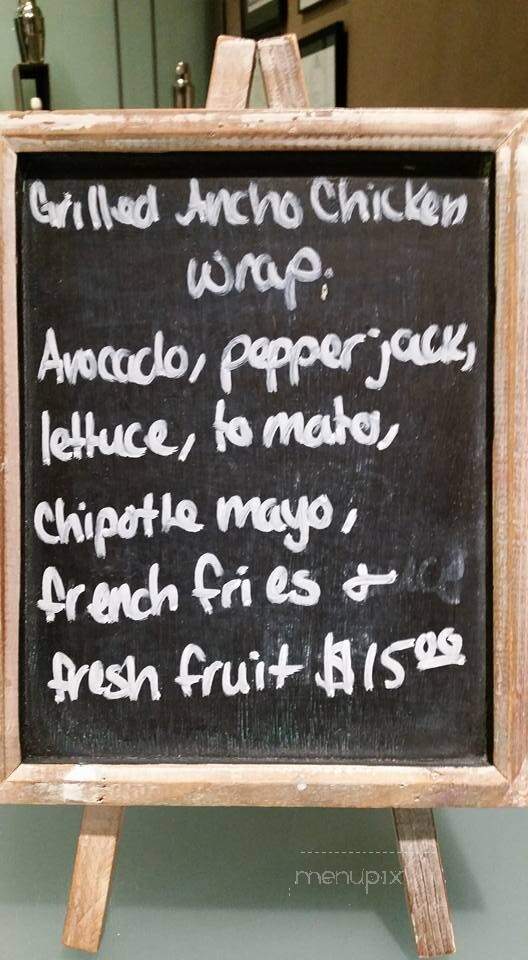 Grilled Ancho Chicken
wrap:
Avocado, pepper jack,
lettuce, tomato,
chipotle mayo,
french fries &
fresh fruit $15.00
menupix